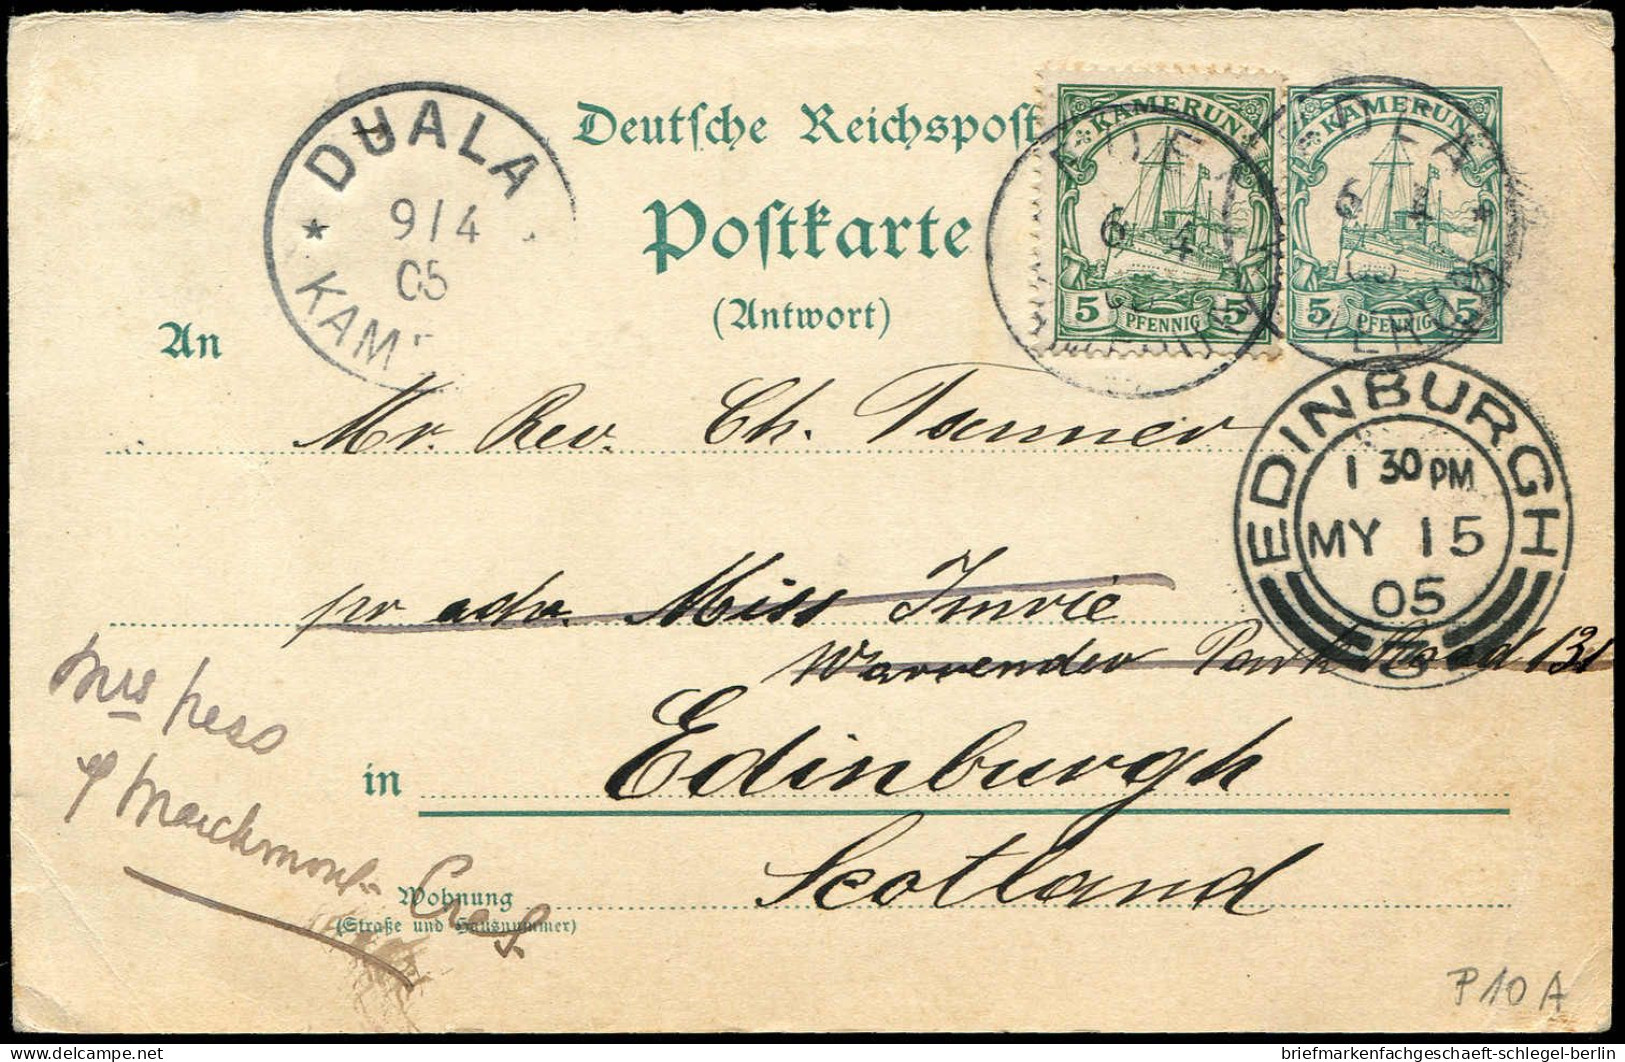 Deutsche Reichspost
Postkarte
(Antwort)
DUALA
9/4
05
KAM
KAMERUN
5 PFENNIG 5
6 4
KAMERUN
5 PFENNIG 5
EDEA
6 4
05
An
Mr. Rev. Ch. Tanner
EDINBURGH
1 30 PM
MY 15
05
pr adr. Miss Imrie
Warrender Park Road 131
in Edinburgh
Scotland
Mrs Hess
9 Marchmont
Cres.
Wohnung
(Straße und Hausnummer)
P 10 A
briefmarkenfachgeschaeft-schlegel-berlin